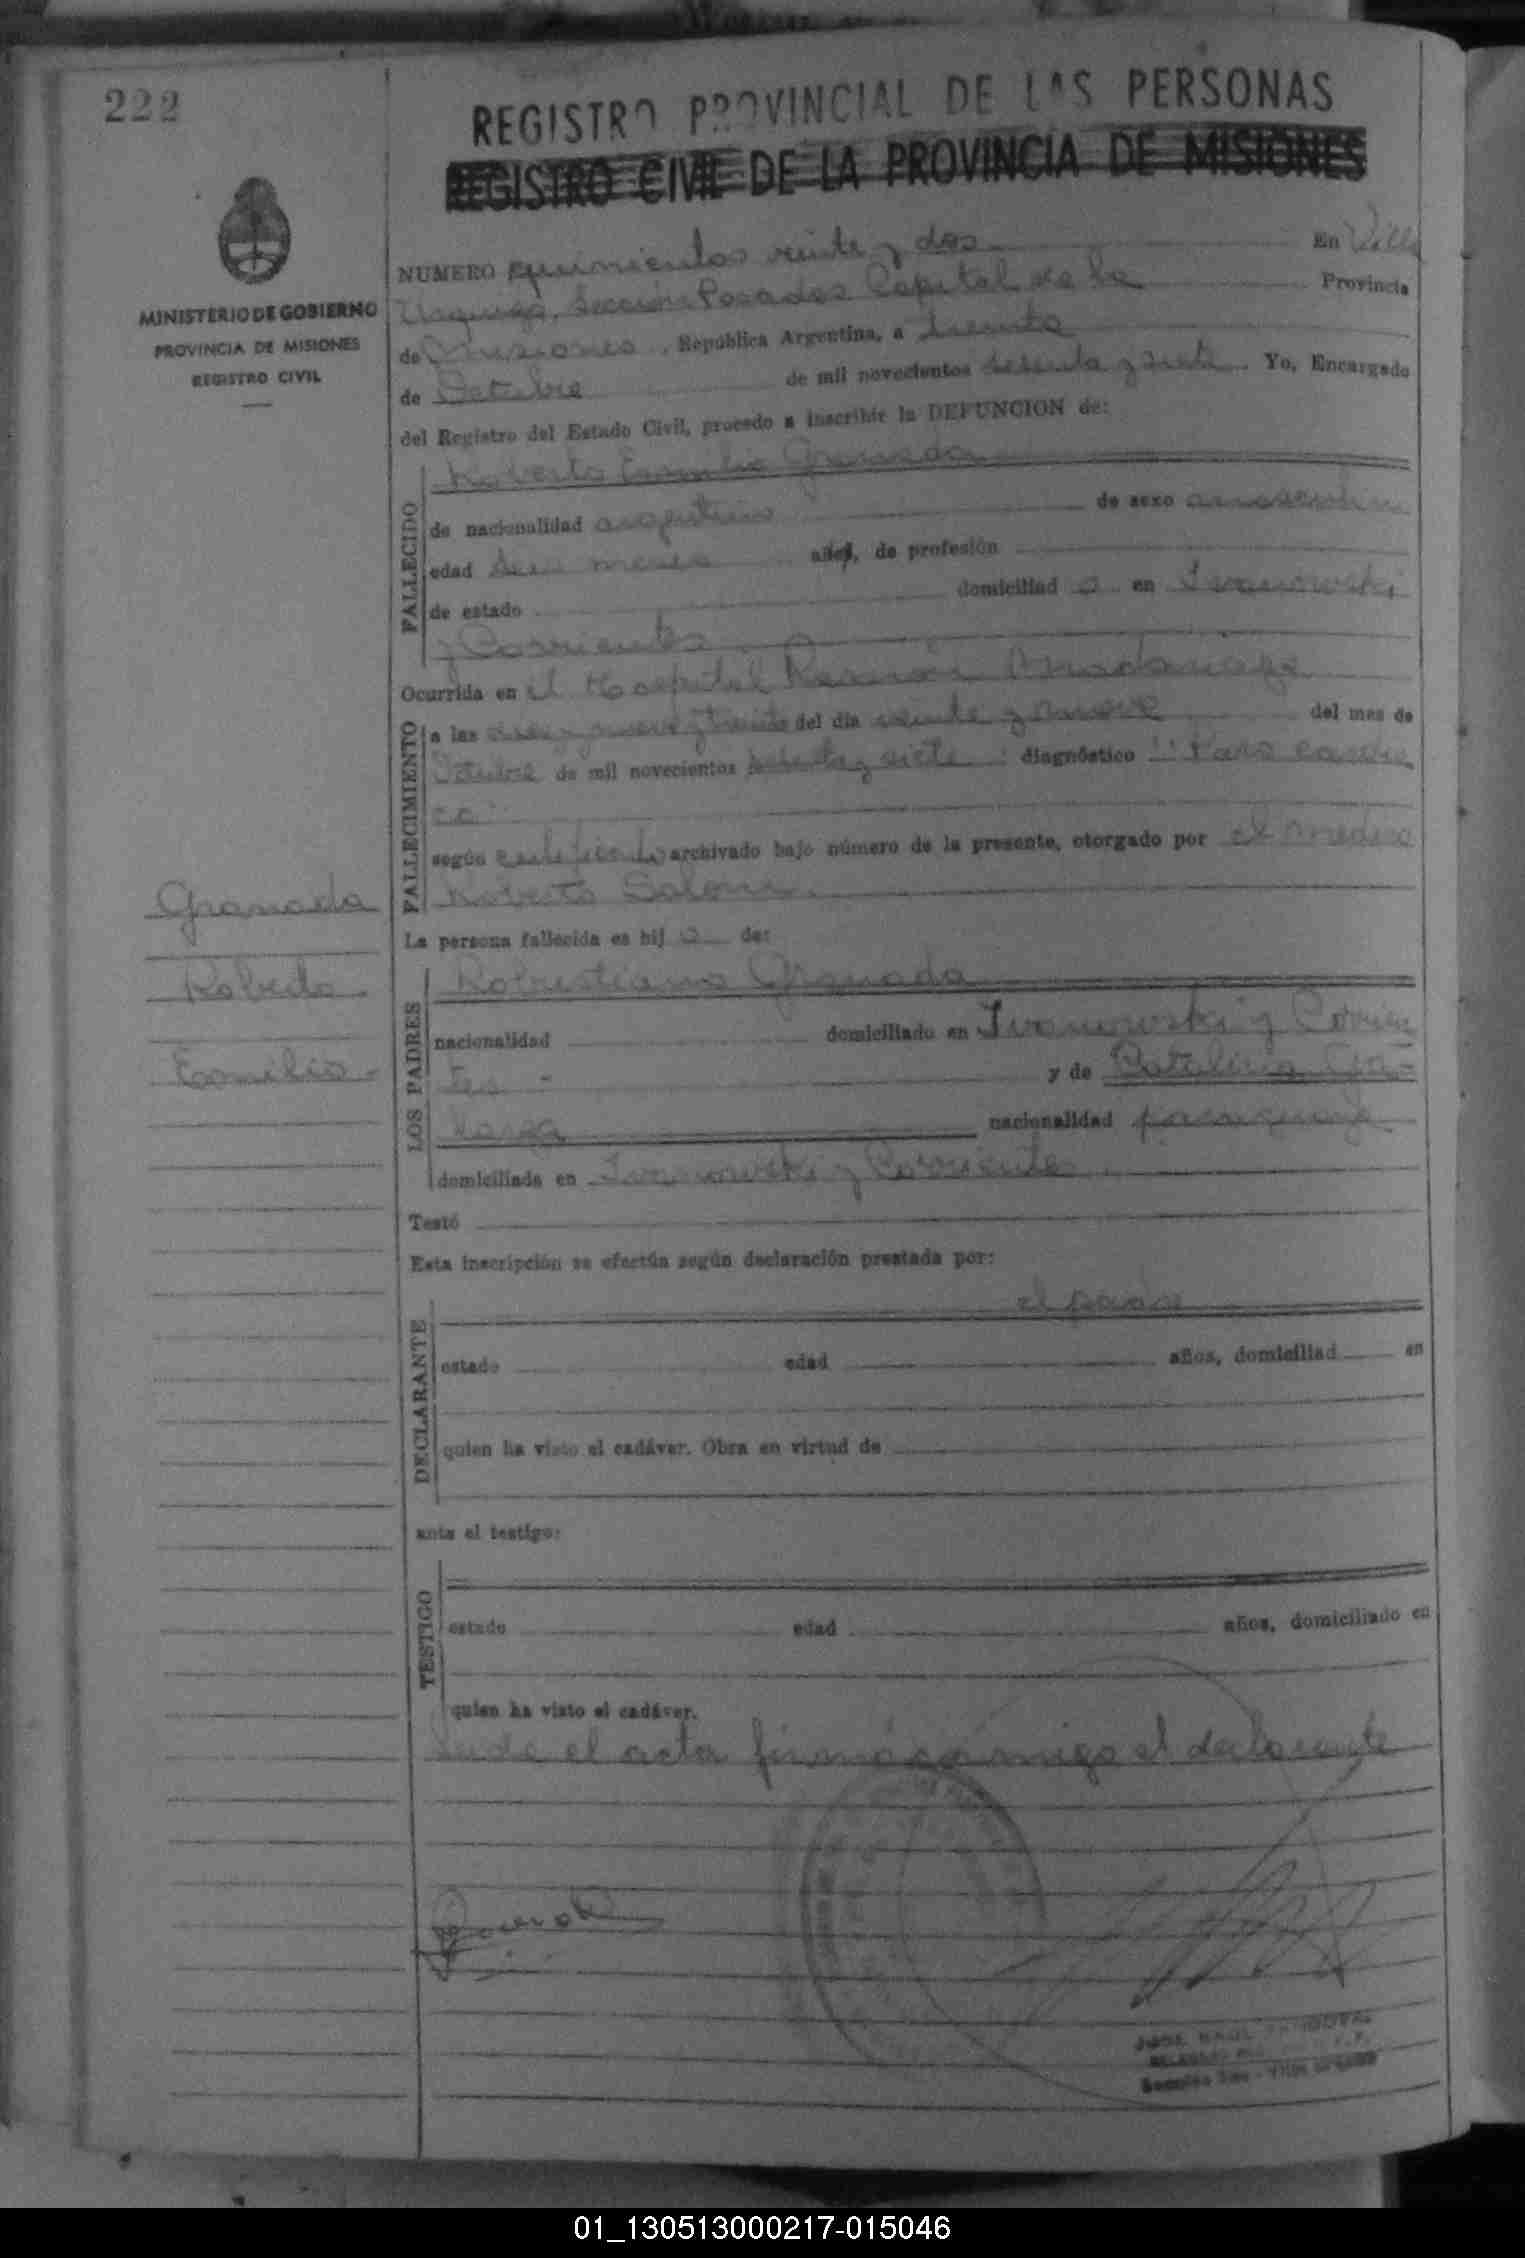 222
REGISTRO PROVINCIAL DE LAS PERSONAS
REGISTRO CIVIL DE LA PROVINCIA DE MISIONES
MINISTERIO DE GOBIERNO
PROVINCIA DE MISIONES
REGISTRO CIVIL
NUMERO quinientos veinte y dos En Villa
Urquiza, Sección Posadas Capital de la Provincia
de Misiones, República Argentina, a treinta
de Octubre de mil novecientos sesenta y siete. Yo, Encargado
del Registro del Estado Civil, procedo a inscribir la DEFUNCION de:
FALLECIDO
Roberto Emilio Granada
de nacionalidad argentino de sexo masculino
edad meses años, de profesión
de estado domiciliad o en Ivanowski
y Corrientes
Ocurrida en el Hospital Ramón Madariaga
FALLECIMIENTO
a las diez y nueve y treinta del día veinte y nueve del mes de
Octubre de mil novecientos sesenta y siete: diagnóstico "Paro cardia
co"
según certificado archivado bajo número de la presente, otorgado por el medico
Roberto
Granada
Roberto
Emilio-
La persona fallecida es hij o de:
LOS PADRES
Granada
nacionalidad domiciliado en Ivanowski y Corrien
tes - y de Catalina
nacionalidad paraguaya
domiciliada en Ivanowski y Corrientes
Testó
Esta inscripción se efectúa según declaración prestada por:
DECLARANTE
el padre
estado edad años, domiciliad en
quien ha visto el cadáver. Obra en virtud de
ante el testigo:
TESTIGO
estado edad años, domiciliado en
quien ha visto el cadáver.
el acta firmó conmigo el declarante
JOSE RAUL SANDOVAL
01_130513000217-015046